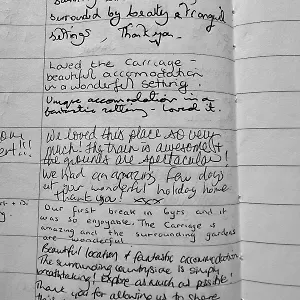 surrounded by beauty & tranquil
settings, Thank you.
Loved the Carriage -
beautiful accomodation
in a wonderful setting.
Unique accomodation in a
fantastic setting - loved it.
We loved this place so very
much! The train is awesome &
the grounds are spectacular!
We had an amazing few days
at your wonderful holiday home
Thank you! xxx
Our first break in 6yrs and it
was so enjoyable. The Carriage is
amazing and the surrounding gardens
are wonderful
Beautiful location & fantastic accommodation.
The surrounding countryside is simply
breathtaking! Explore as much as possible!
Thank you for allowing us to share